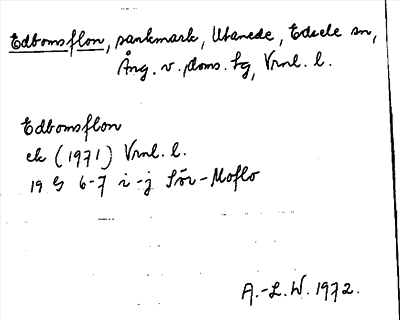 Edbomsflon, sankmark, Utanede, Edsele sn,
Ång. v. doms. sg, Vrnl. l.
Edbomsflon
ek (1971) Vrnl. l.
19 G 6-7 i-j Sör-Moflo
A.-L.W. 1972.